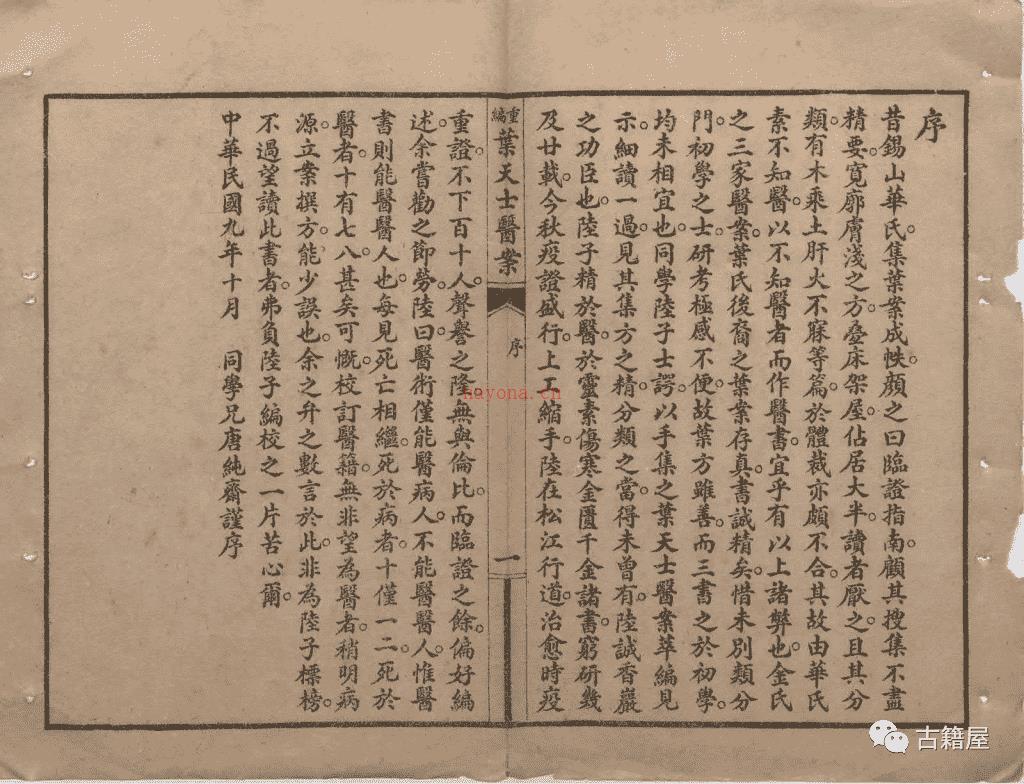 序
昔錫山華氏。集葉案成帙。顏之曰臨證指南。顧其搜集不盡
精要。寬廓膚淺之方。疊床架屋。佔居大半。讀者厭之。且其分
類。有木乘土肝火不寐等篇。於體裁亦頗不合。其故由華氏
素不知醫。以不知醫者而作醫書。宜乎有以上諸弊也。金氏
之三家醫案。葉氏後裔之葉案存真。書誠精矣。惜未別類分
門。初學之士。研考極感不便。故葉方雖善。而三書之於初學。
均未相宜也。同學陸子士諤。以手集之葉天士醫案萃編見
示。細讀一過。見其集方之精。分類之當。得未曾有。陸誠香巖
之功臣也。陸子精於醫。於靈素傷寒金匱千金諸書。窮研幾
及廿載。今秋疫證盛行。上工縮手。陸在松江行道。治愈時疫
重編葉天士醫案
序
一
重證。不下百十人。聲譽之隆。無與倫比。而臨證之餘。偏好編
述。余嘗勸之節勞。陸曰。醫術僅能醫病人。不能醫醫人。惟醫
書則能醫醫人也。每見死亡相繼。死於病者。十僅一二。死於
醫者。十有七八。甚矣可慨。校訂醫籍。無非望為醫者。稍明病
源。立案撰方。能少誤也。余之弁之數言於此。非為陸子標榜。
不過望讀此書者。弗負陸子編校之一片苦心爾。
中華民國九年十月　同學兄唐純齋謹序
nayona.cn
古籍屋